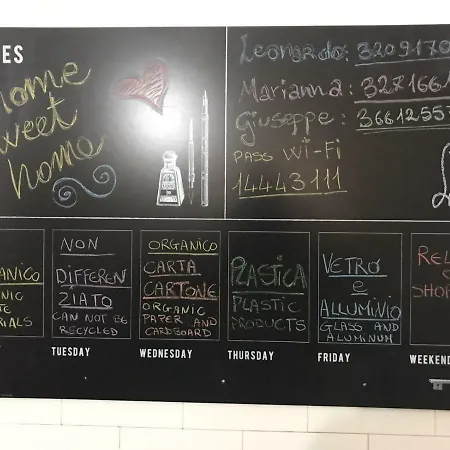 ES
home
sweet
home
Leonardo: 3209170
Marianna: 3271661
Giuseppe: 36612557
PASS WI-FI
14443111
ANICO
NIC
TE
RIALS
NON
DIFFEREN
ZIATO
CAN NOT BE
RECYCLED
TUESDAY
ORGANICO
CARTA
CARTONE
ORGANIC
PAPER AND
CARDBOARD
WEDNESDAY
PLASTICA
PLASTIC
PRODUCTS
THURSDAY
VETRO
e
ALLUMINIO
GLASS AND
ALUMINUM
FRIDAY
REL
SHOP
WEEKEND